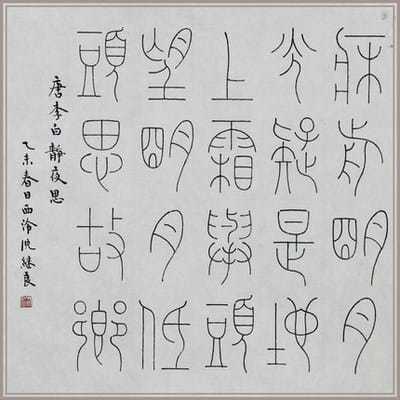 床前明月
光疑是地
上霜舉頭
望明月低
頭思故鄉
唐李白靜夜思
乙未春日西泠沈继良